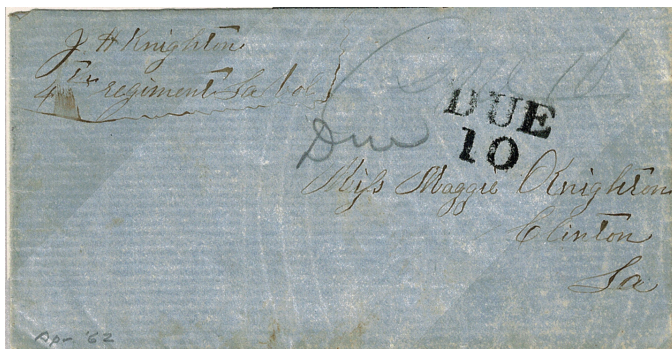 J H Knighton
4th regiment La Vol
DUE
10
Due
Miss Maggie Knighton
Clinton
La
Ap- '62